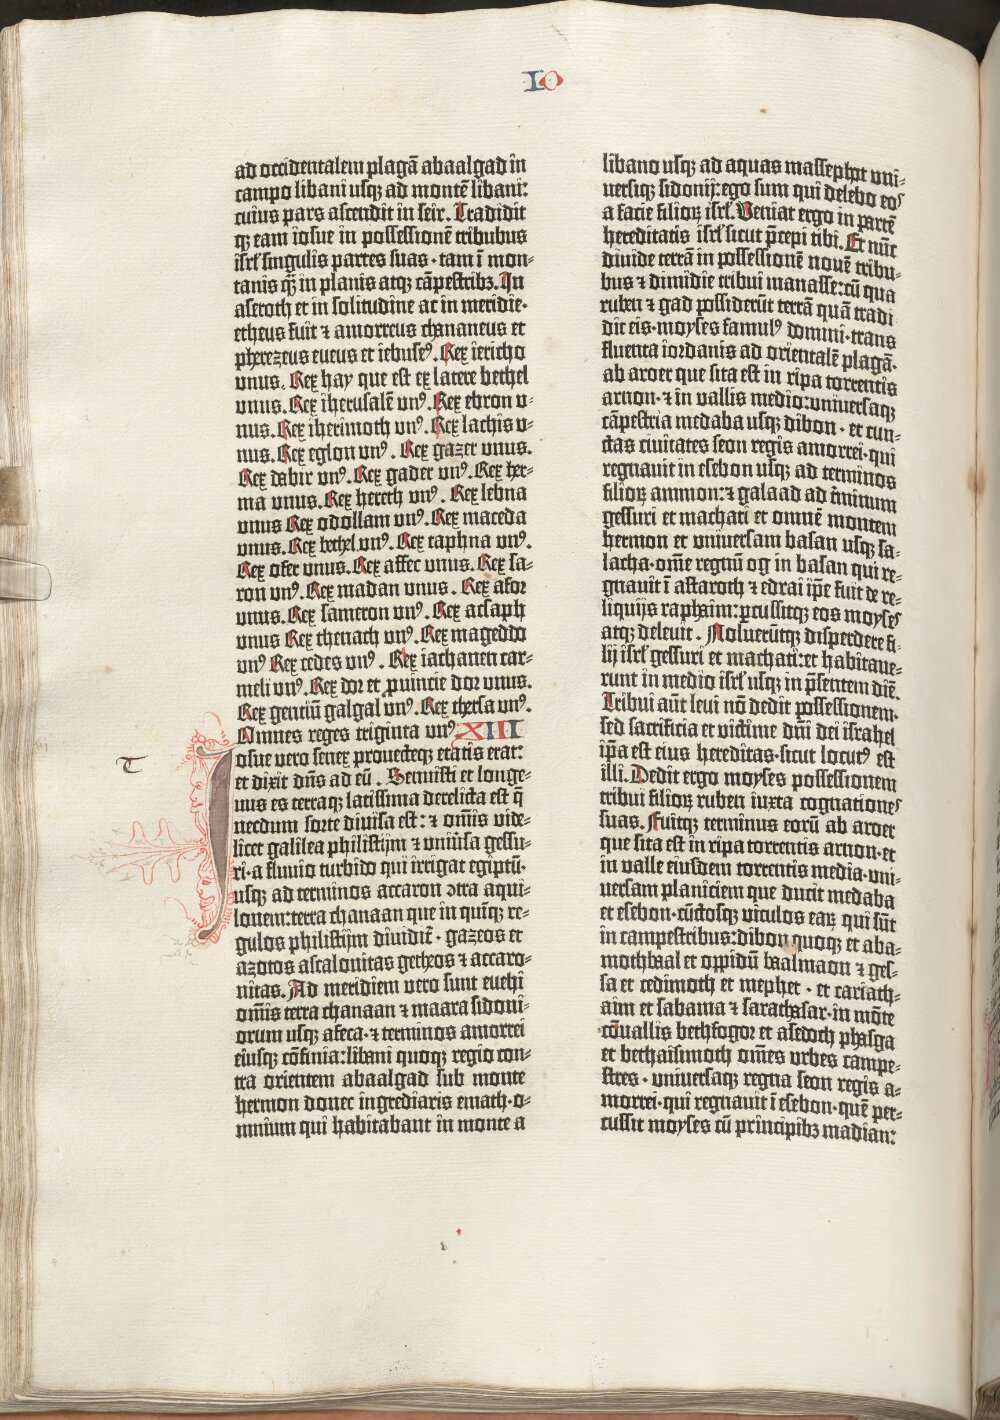 IO
ad occidentalem plagā abaalgad in
campo libani usqꝫ ad montē libani:
cuius pars ascendit in seir. Tradidit
qꝫ eam iosue in possessionē tribubus
isrl' singulis partes suas · tam ī mon-
tanis q̄ȝ in planis atqꝫ cāpestribꝫ. In
aseroth et in solitudine ac in meridie·
etheus fuit ⁊ amorreus chananeus et
pherezeus eueus et iebuseꝰ. Rex iericho
vnus. Rex hay que est ex latere bethel
vnus. Rex iherusalē vnꝰ. Rex ebron v-
nus. Rex iherimoth vnꝰ. Rex lachis v-
nus. Rex eglon vnꝰ. Rex gazer vnus.
Rex dabir vnꝰ. Rex gader vnꝰ. Rex her-
ma vnus. Rex hereth vnꝰ. Rex lebna
vnus Rex odollam vnꝰ. Rex maceda
vnus. Rex bethel vnꝰ. Rex taphna vnꝰ.
Rex ofer vnus. Rex affec vnus. Rex sa-
ron vnꝰ. Rex madan vnus. Rex asor
vnus. Rex sameron vnꝰ. Rex acsaph
vnus Rex thenach vnꝰ. Rex mageddo
vnꝰ Rex cedes vnꝰ. Rex iachanen car-
meli vnꝰ. Rex dor et ꝓuincie dor vnus.
Rex gentiū galgal vnꝰ. Rex thersa vnꝰ.
Omnes reges triginta vnꝰ. XIII
Iosue vero senex prouecteqꝫ etatis erat:
et dixit dn̄s ad eū. Senuisti et longe-
uus es terraqꝫ latissima derelicta est q̄
necdum sorte diuisa est: ⁊ om̄is vide-
licet galilea philistijm ⁊ vniūsa gessu-
ri·a fluuio turbido qui irrigat egiptū·
usqꝫ ad terminos accaron ↄtra aqui-
lonem:terra chanaan que in quīqꝫ re-
gulos philistijm diuidit̄ · gazeos et
azotos ascalonitas getheos ⁊ accaro-
nitas. Ad meridiem vero sunt euehi
om̄is terra chanaan ⁊ maara sidoni-
orum usqꝫ afeca·⁊ terminos amorrei
eiusqꝫ cōfinia:libani quoqꝫ regio con-
tra orientem abaalgad sub monte
hermon donec ingrediaris emath·o-
mnium qui habitabant in monte a
libano usqꝫ ad aquas massephot vni-
uersiqꝫ sidonij:ego sum qui delebo eos
a facie filioꝝ isrl'. Veniat ergo in partē
hereditatis isrl' sicut p̄cepi tibi. Et nūc
diuide terrā in possessionē nouē tribu-
bus ⁊ dimidie tribui manasse:cū qua
ruben ⁊ gad possiderūt terrā quā tradi
dit eis·moyses famulꝰ domini·trans
fluenta iordanis ad orientalē plagā·
ab aroer que sita est in ripa torrentis
arnon·⁊ in vallis medio:vniuersaqꝫ
cāpestria medaba usqꝫ dibon · et cun-
ctas ciuitates seon regis amorrei·qui
regnauit in esebon usqꝫ ad terminos
filioꝝ ammon:⁊ galaad ad t̄minum
gessuri et machati et omnē montem
hermon et vniuersam basan usqꝫ sa-
lacha·om̄e regnū og in basan qui re-
gnauit ī astaroth ⁊ edrai ip̄e fuit de re-
liquijs raphaim:ꝑcussitqꝫ eos moyses
atqꝫ deleuit. Nolueritqꝫ disperdere fi-
lij isrl' gessuri et machati:et habitaue-
runt in medio isrl' usqꝫ in p̄sentem diē.
Tribui aūt leui nō dedit possessionem·
sed sacrificia et victime dn̄i dei israhel
ip̄a est eius hereditas·sicut locutꝰ est
illi. Dedit ergo moyses possessionem
tribui filioꝝ ruben iuxta cognationes
suas. Fuitqꝫ terminus eorū ab aroer
que sita est in ripa torrentis arnon·et
in valle eiusdem torrentis media·vni-
uersam planiciem que ducit medaba
et esebon·cūctosqꝫ viculos eaꝝ qui sūt
in campestribus:dibon quoqꝫ et aba-
mothbaal et oppidū baalmaon ⁊ ges-
sa et cedimoth et mephet · et cariath-
aim et sabama ⁊ sarathasar·in mōte
cōuallis bethfogor et asedoch phasga
et bethaisimoth om̄es vrbes campe-
stres · vniuersaqꝫ regna seon regis a-
morrei·qui regnauit ī esebon·quē per-
cussit moyses cū principibꝫ madian: